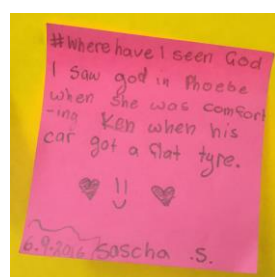 #Where have I seen God
I saw god in Phoebe
when she was comfort
-ing Ken when his
car got a flat tyre.
6.9.2016 Sascha .S.